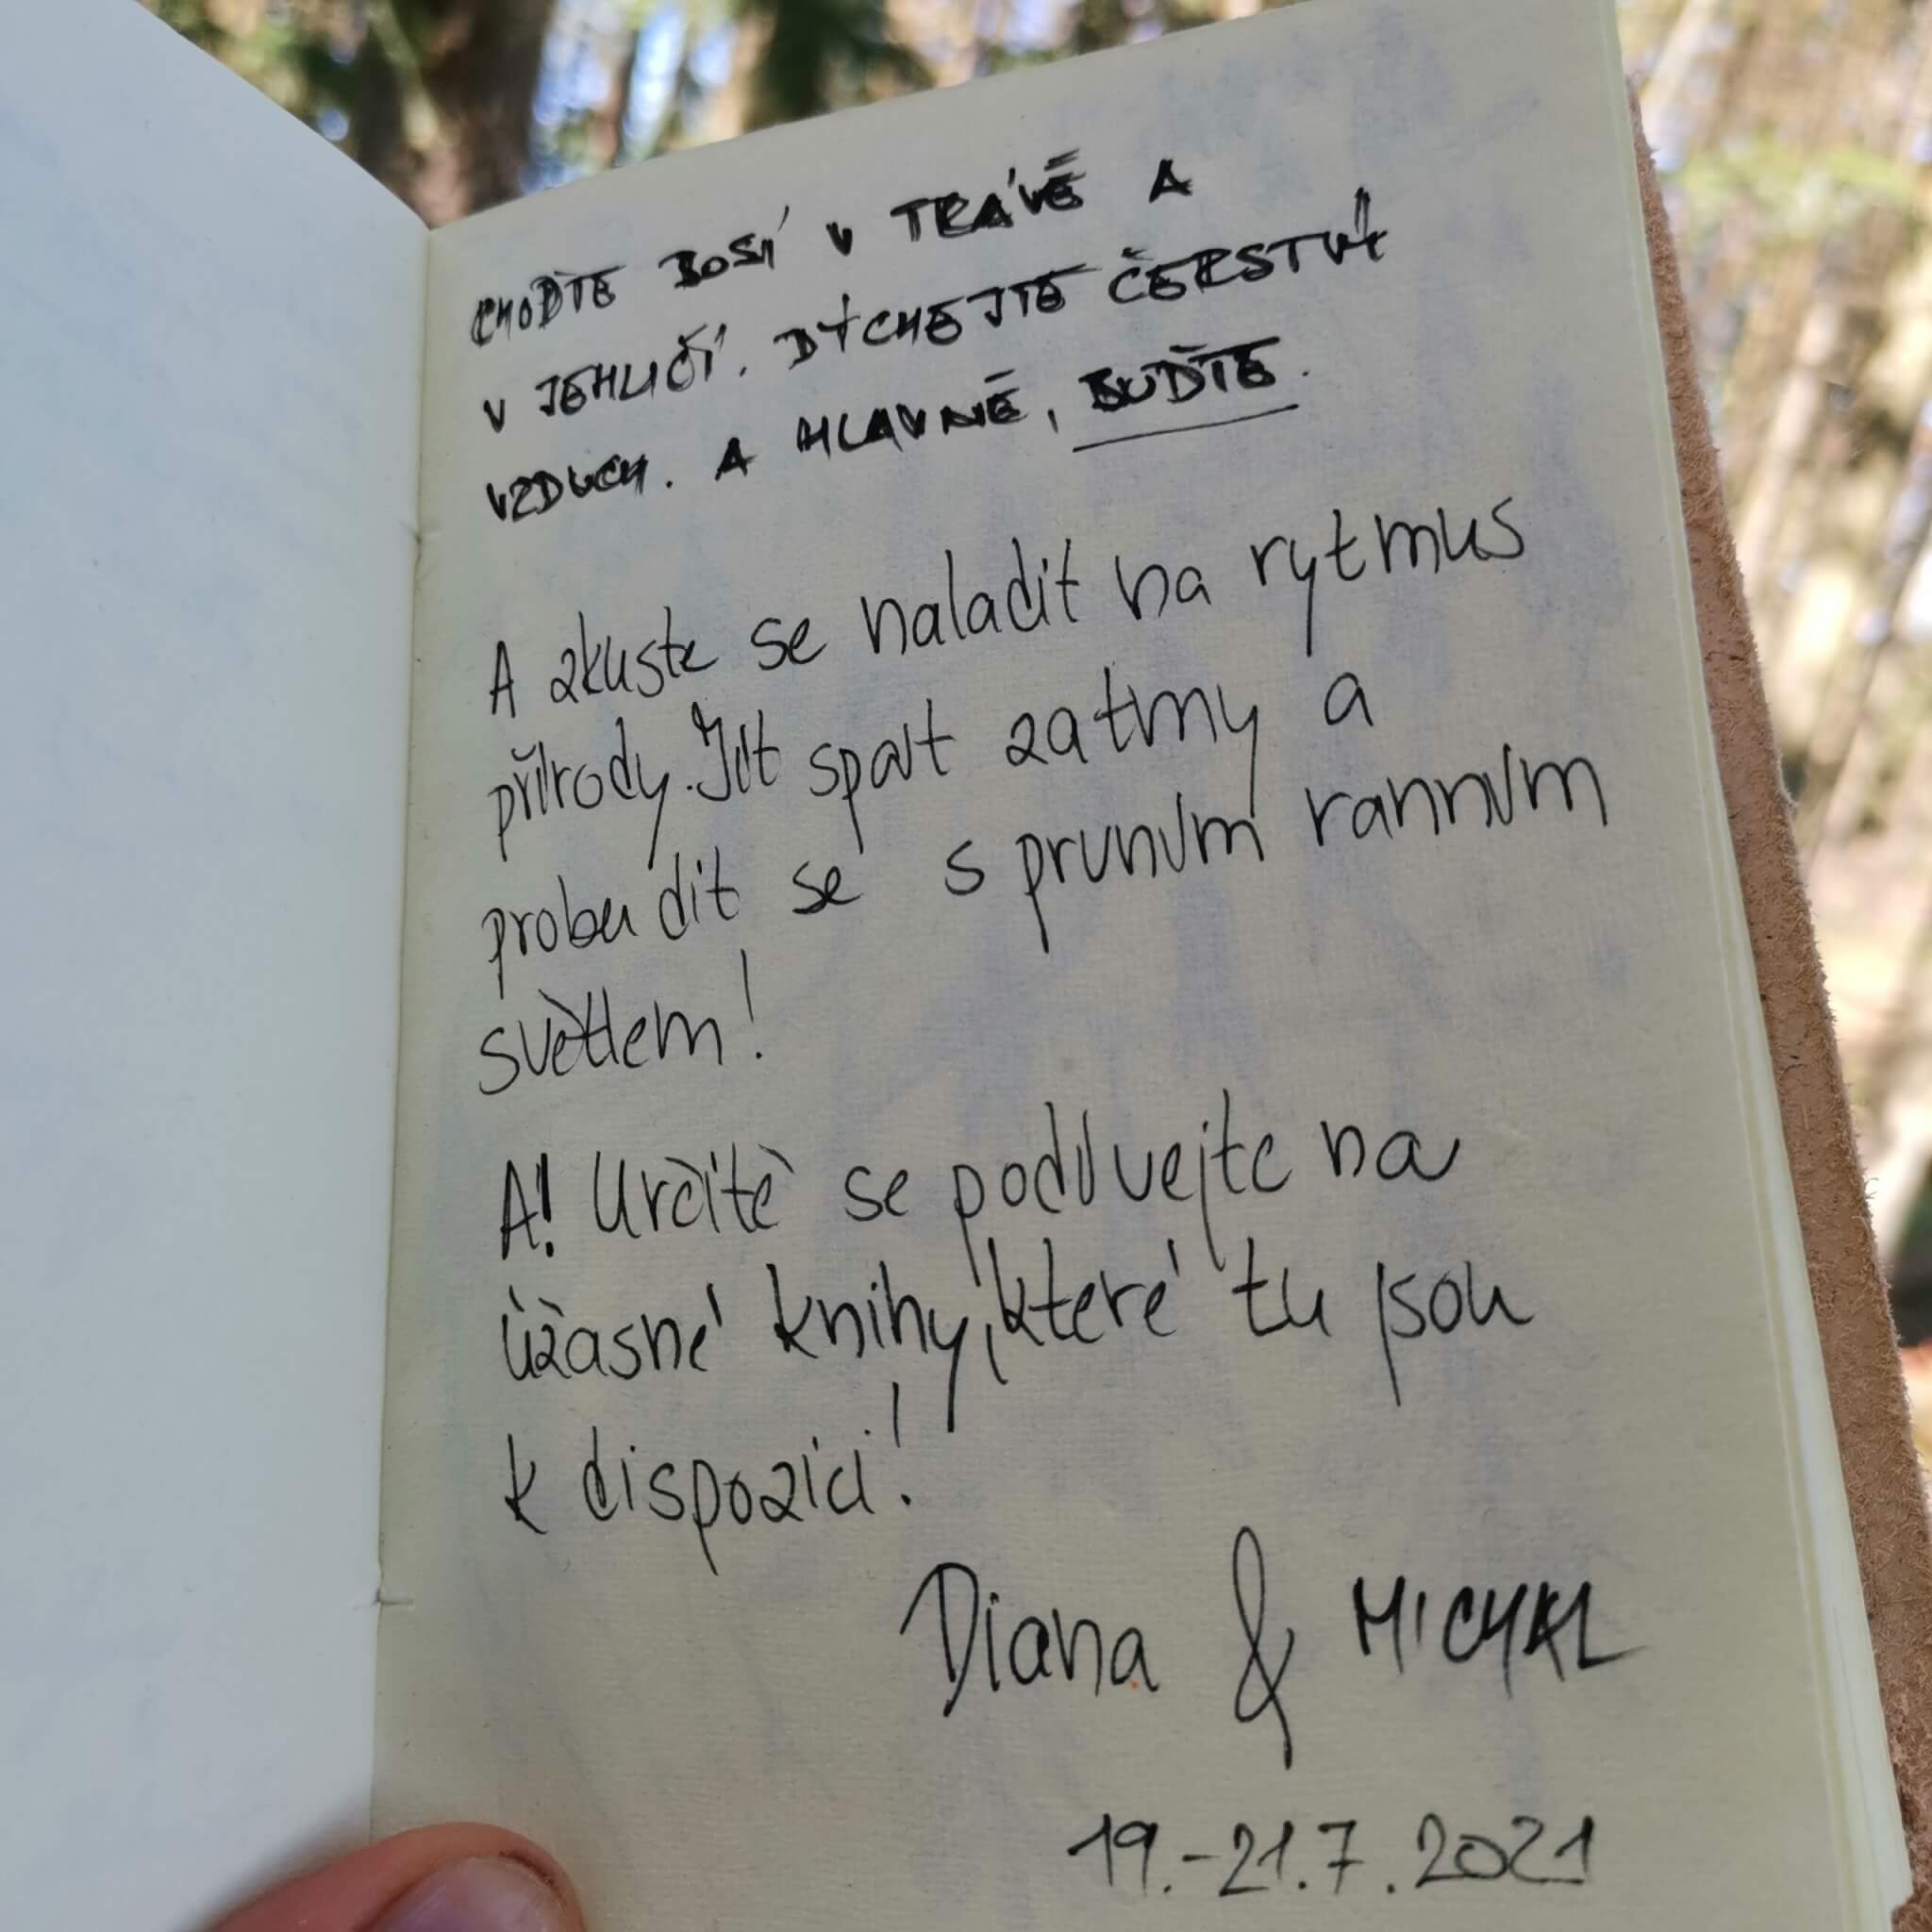 CHOĎTE BOSÍ V TRÁVĚ A
V JEHLIČÍ. DÝCHEJTE ČERSTVÝ
VZDUCH. A HLAVNĚ, BUĎTE.
A zkuste se naladit na rytmus
přírody. Jít spát za tmy a
probudit se s prvním ranním
světlem!
A! Určitě se podívejte na
úžasné knihy, které tu jsou
k dispozici!
Diana &
19.-21.7.2021